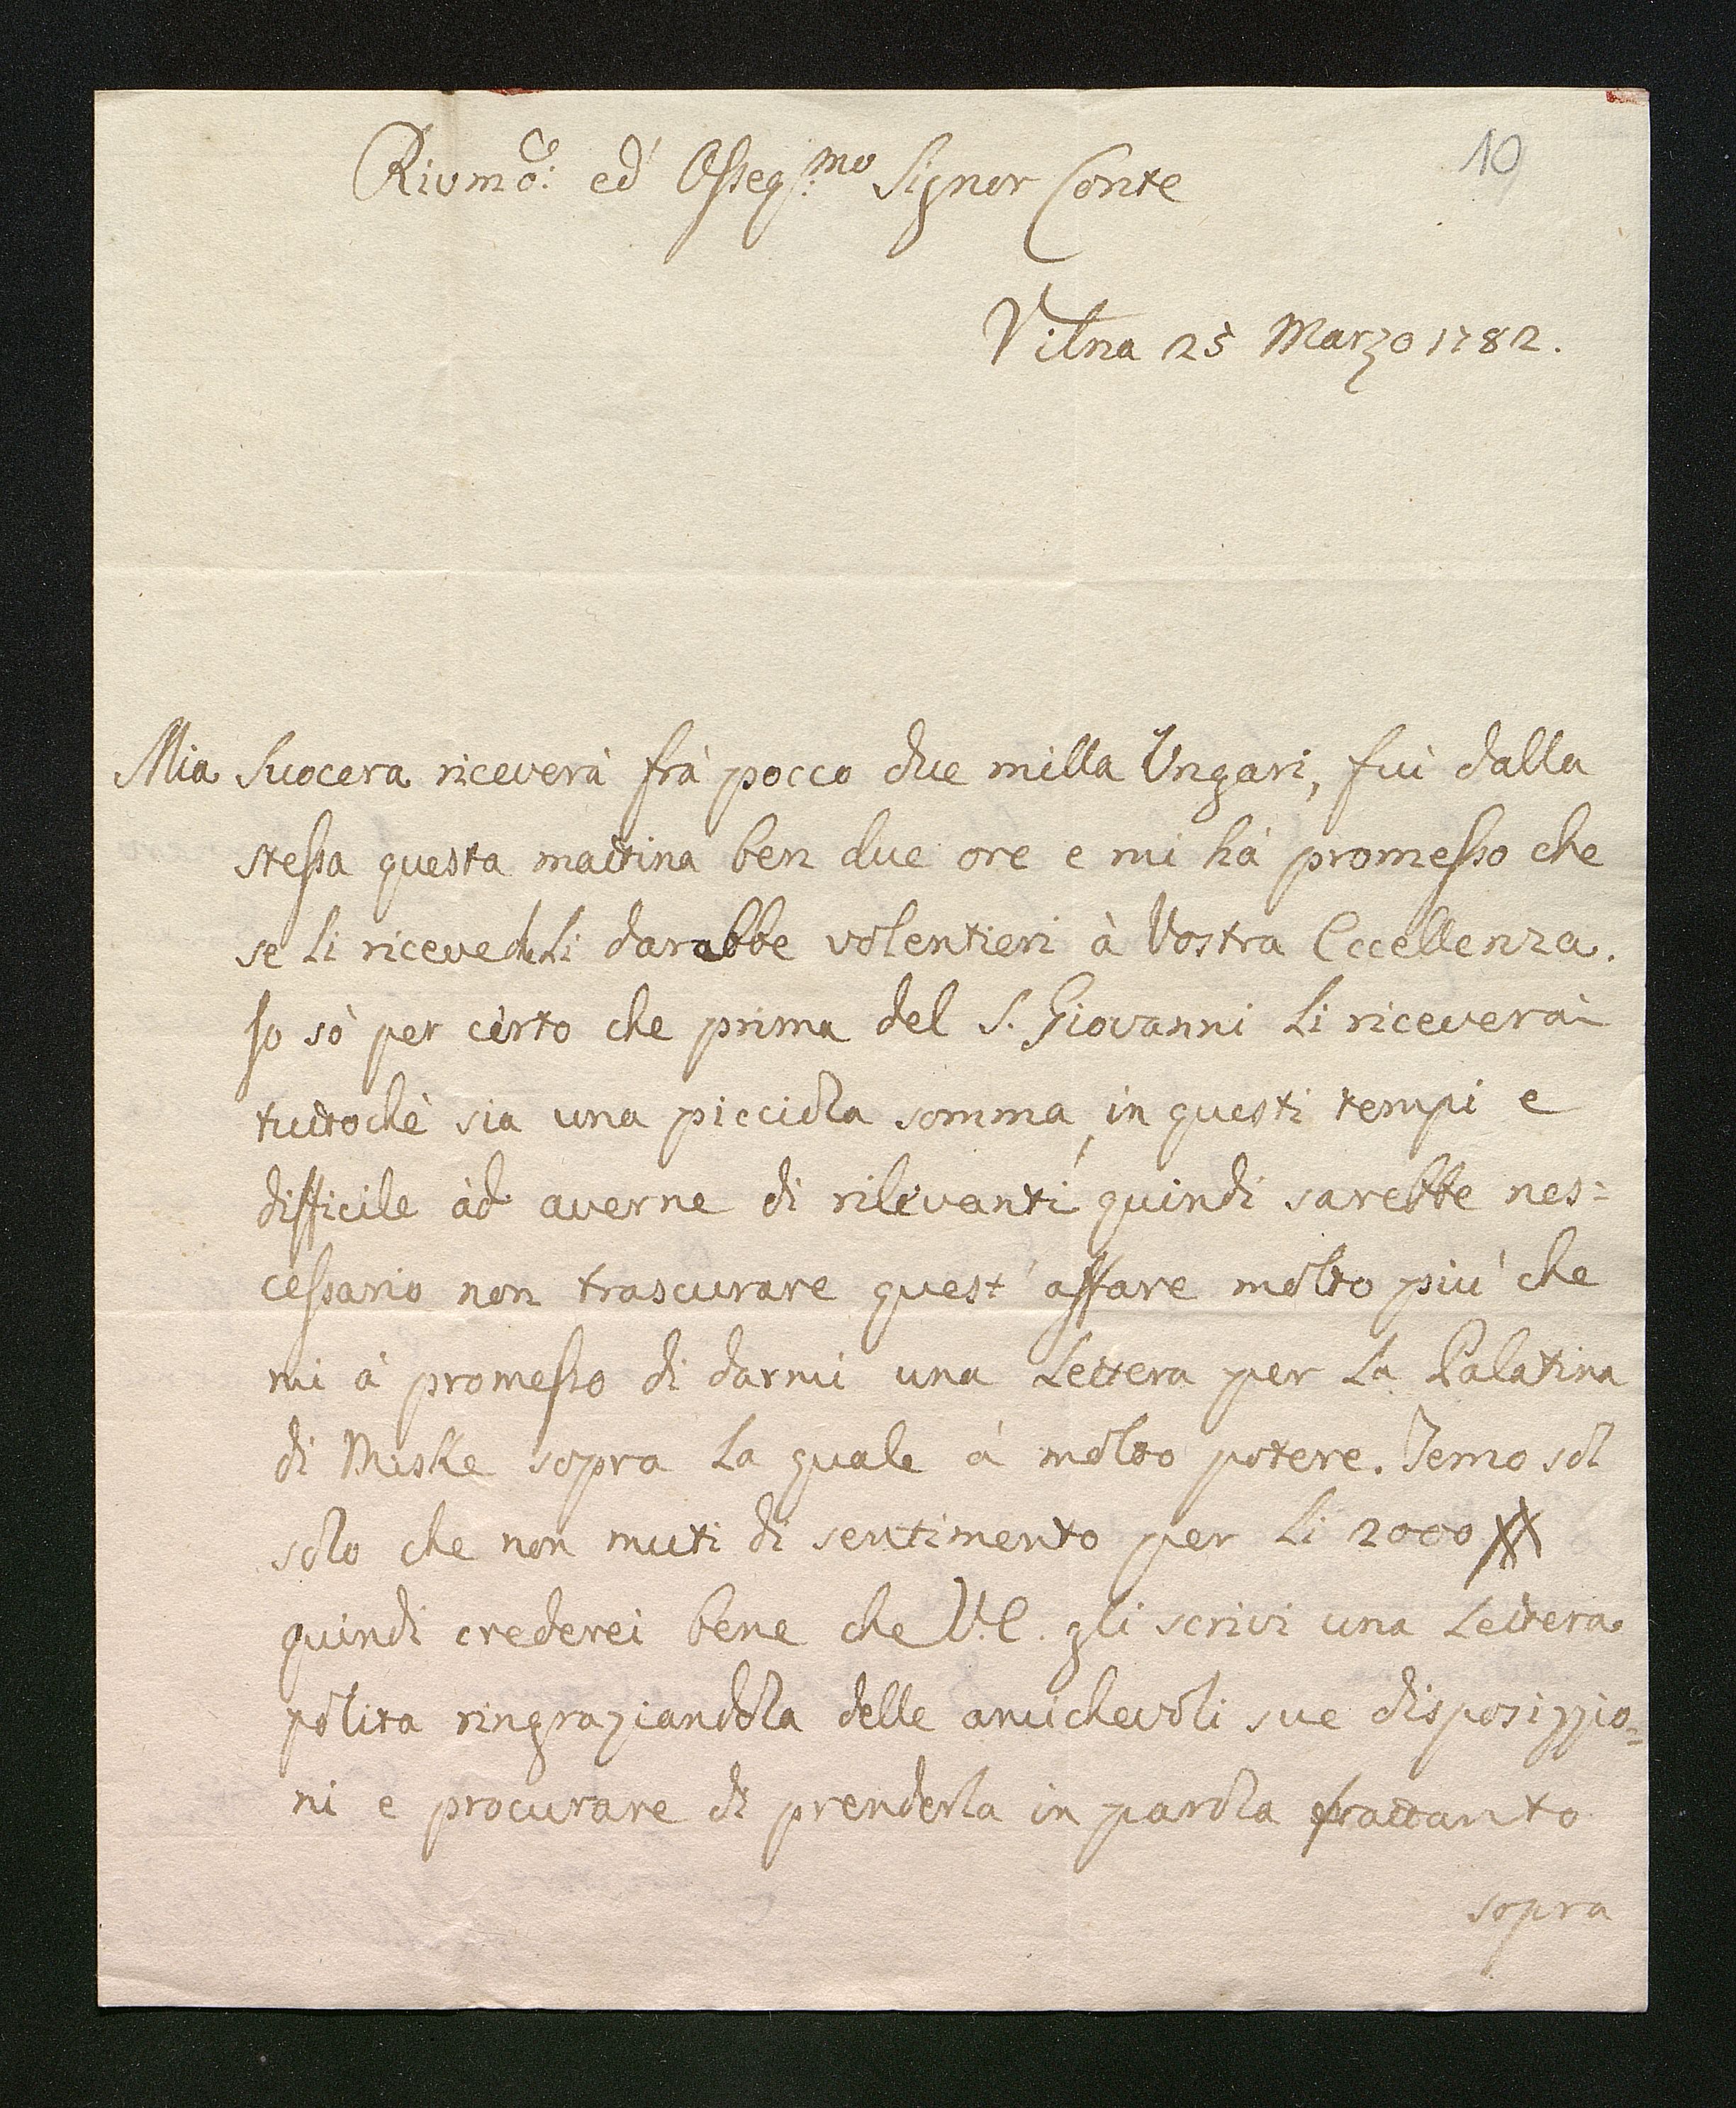 10
Rivmo: ed' Osseq:mo Signor Conte
Vilna 25 Marzo 1782.
Mia Suocera riceverà frà pocco due milla Ungari, fui dalla
stessa questa mattina ben due ore e mi hà promesso che
se li riceve li darebbe volentieri à Vostra Eccellenza.
Io sò per certo che prima del S. Giovanni li riceverà
tuttochè sia una picciola somma, in questi tempi e
difficile àd averne di rilevanti quindi sarebbe nes=
cessario non trascurare quest' affare molto più che
mi à promesso di darmi una Lettera per La Palatina
di Mcske sopra La quale à molto potere. Temo sol
solo che non muti di sentimento per li 2000 ##
quindi crederei bene che V:E. gli scrivi una Lettera
polita ringraziandola delle amichevoli sue disposizzio=
ni e procurare di prenderla in parola frattanto
sopra